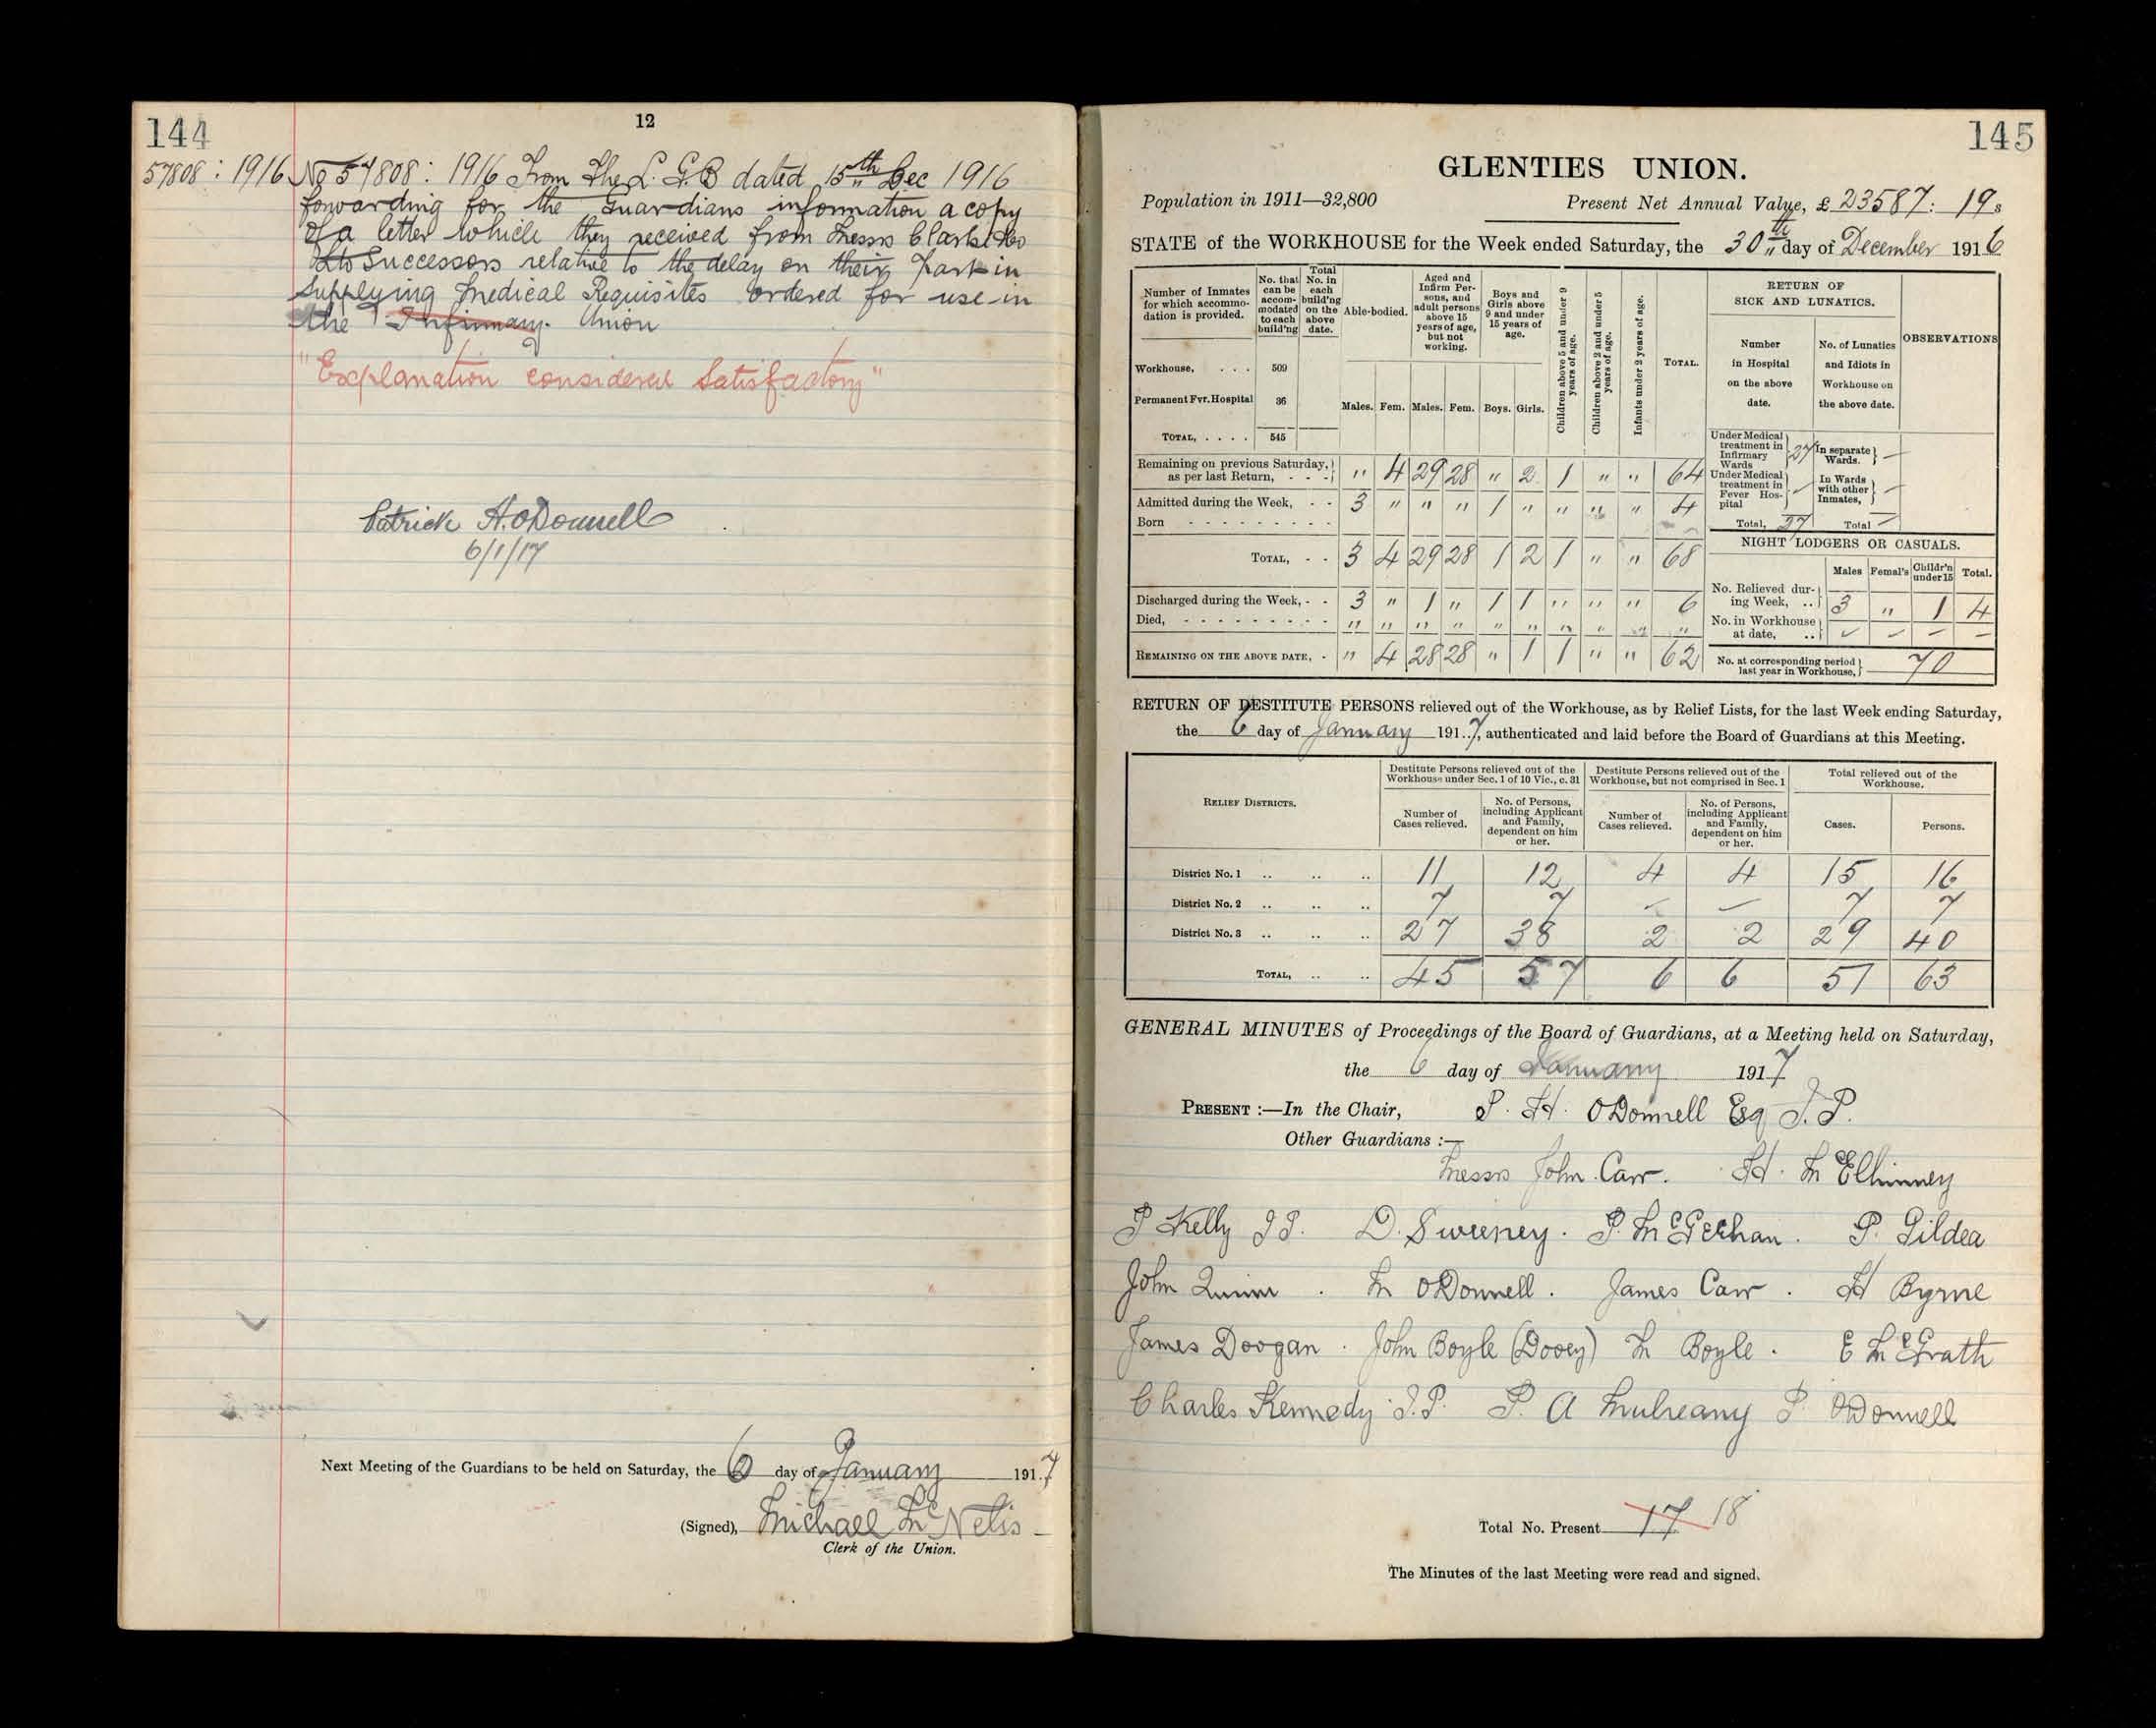 144
12
57808 : 1916 No 57808 : 1916 From The L. G. B dated 15th Dec 1916
forwarding for the Guardians information a copy
of a letter which they received from Messrs Clarke &
Successors relative to the delay on their part in
Supplying Medical Requisites ordered for use in
the Infirmary. Union
"Explanation considered Satisfactory"
Patrick H. O'Donnell
6/1/17
Next Meeting of the Guardians to be held on Saturday, the 6 day of January 1917
(Signed), Michael McNelis
Clerk of the Union.
145
GLENTIES UNION.
Population in 1911—32,800 Present Net Annual Value, £23587 : 19s
STATE of the WORKHOUSE for the Week ended Saturday, the 30th day of December 1916
Number of Inmates for which accommodation is provided. No. that can be accommodated to each build'ng Total No. in each build'ng on the above date. Able-bodied. Aged and Infirm Persons, and adult persons above 15 years of age, but not working. Boys and Girls above 9 and under 15 years of age. Children above 5 and under 9 years of age. Children above 2 and under 5 years of age. Infants under 2 years of age. TOTAL. RETURN OF SICK AND LUNATICS. OBSERVATIONS
Number in Hospital on the above date. No. of Lunatics and Idiots in Workhouse on the above date.
Workhouse, . . . 509
Permanent Fvr. Hospital 36
Males. Fem. Males. Fem. Boys. Girls.
TOTAL, . . . . 545
Remaining on previous Saturday, as per last Return, - - - " 4 29 28 " 2 1 " " 64
Under Medical treatment in Infirmary Wards 27 In separate Wards. —
Under Medical treatment in Fever Hospital — In Wards with other Inmates, —
Admitted during the Week, - - 3 " " " 1 " " " " 4
Born - - - - - - - - -
Total, 27 Total —
TOTAL, - - 3 4 29 28 1 2 1 " " 68
NIGHT LODGERS OR CASUALS.
Males Femal's Childr'n under 15 Total.
Discharged during the Week, - - 3 " 1 " 1 1 " " " 6
No. Relieved during Week, .. 3 " 1 4
Died, - - - - - - - - - " " " " " " " " " "
No. in Workhouse at date, .. — — — —
REMAINING ON THE ABOVE DATE, - " 4 28 28 " 1 1 " " 62
No. at corresponding period last year in Workhouse, 70
RETURN OF DESTITUTE PERSONS relieved out of the Workhouse, as by Relief Lists, for the last Week ending Saturday,
the 6 day of January 1917, authenticated and laid before the Board of Guardians at this Meeting.
RELIEF DISTRICTS. Destitute Persons relieved out of the Workhouse under Sec. 1 of 10 Vic., c. 31 Destitute Persons relieved out of the Workhouse, but not comprised in Sec. 1 Total relieved out of the Workhouse.
Number of Cases relieved. No. of Persons, including Applicant and Family, dependent on him or her. Number of Cases relieved. No. of Persons, including Applicant and Family, dependent on him or her. Cases. Persons.
District No. 1 .. .. .. 11 12 4 4 15 16
District No. 2 .. .. .. 7 7 — — 7 7
District No. 3 .. .. .. 27 38 2 2 29 40
TOTAL, .. .. 45 57 6 6 51 63
GENERAL MINUTES of Proceedings of the Board of Guardians, at a Meeting held on Saturday,
the 6 day of January 1917
PRESENT :—In the Chair, P. H. O'Donnell Esq J.P.
Other Guardians :—
Messrs John Carr. H. McElhinney
P Kelly J P. D. Sweeney. P. McGeehan. P. Gildea
John Quinn . M O'Donnell . James Carr . H Byrne
James Doogan . John Boyle (Dooey) M Boyle . E McGrath
Charles Kennedy J.P. P. A Mulreany P O'Donnell
Total No. Present 17 18
The Minutes of the last Meeting were read and signed.